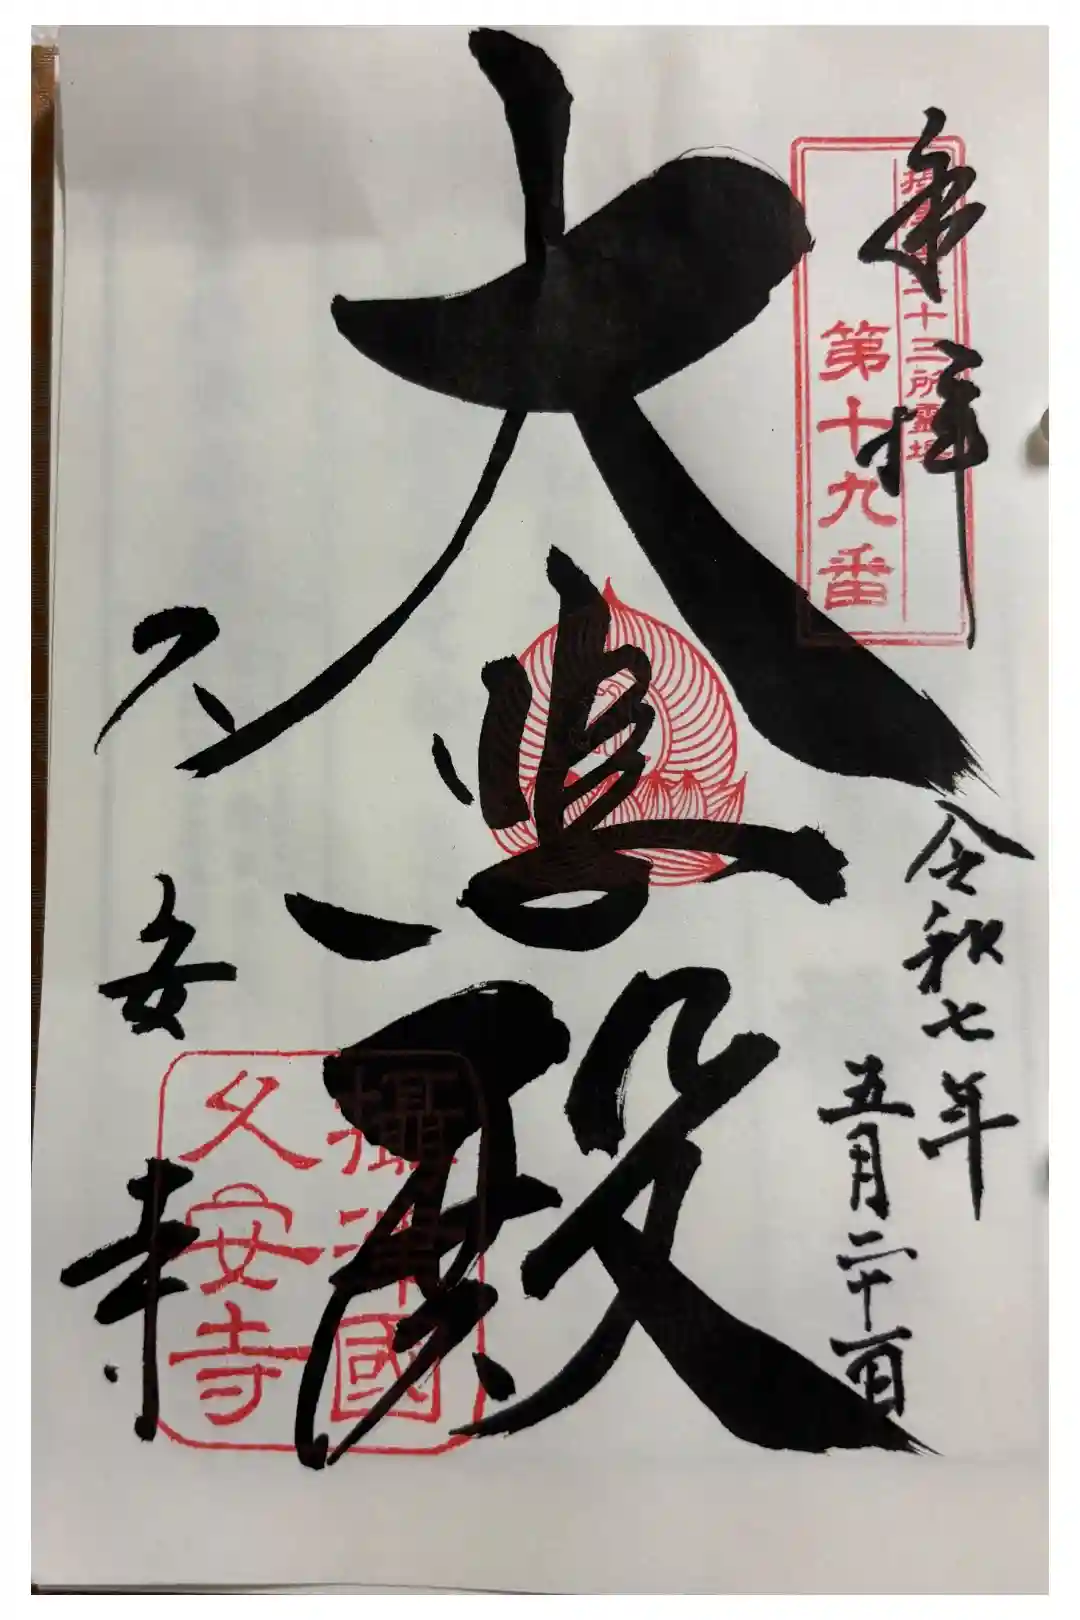 奉拝
三十三所霊場
第十九番
令和七年
五月二十一日
大悲殿
久安寺
攝津國
久安寺